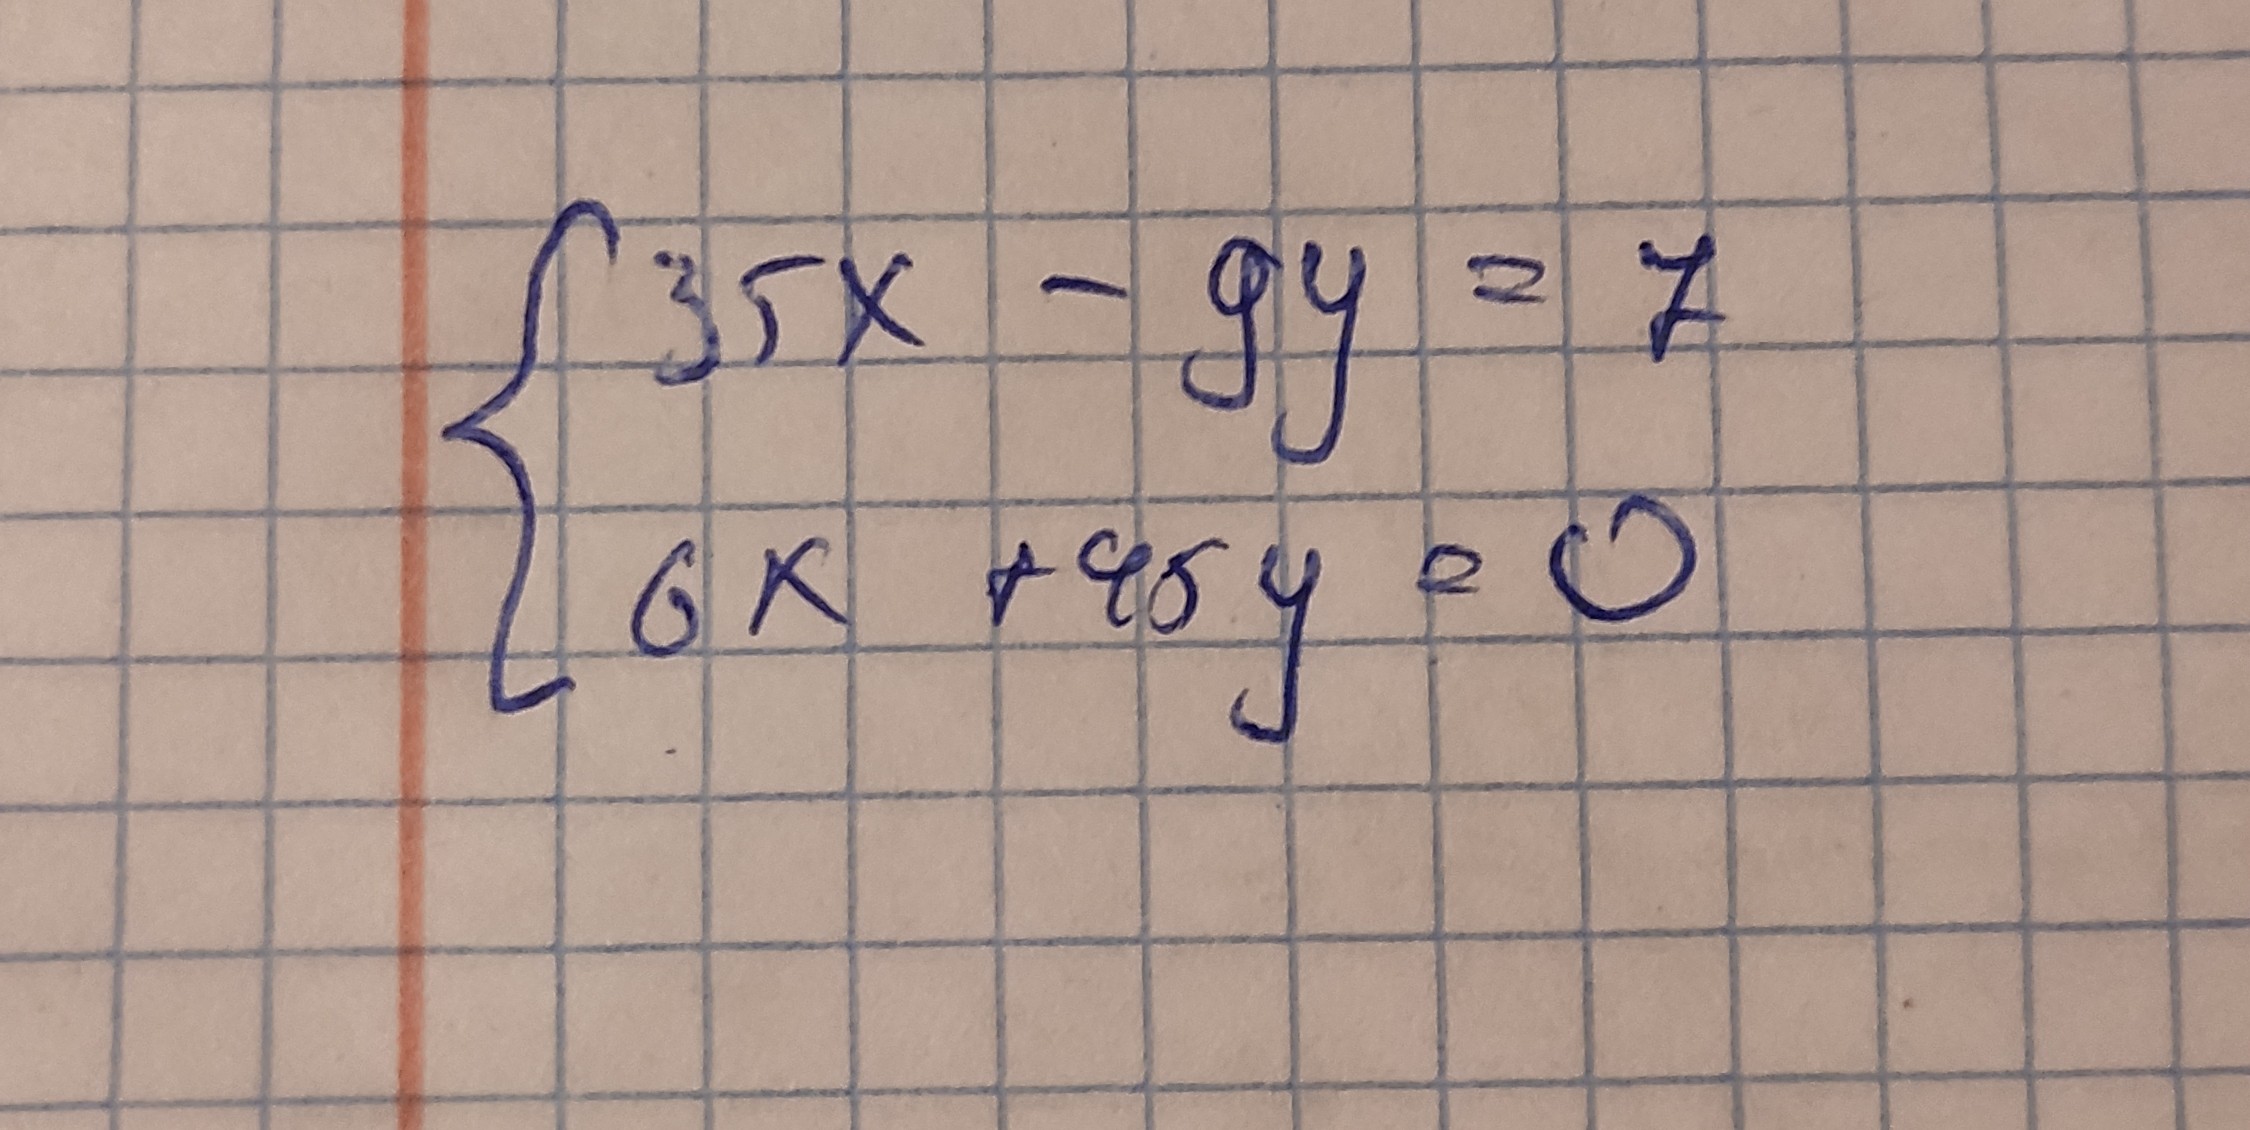 35x - 9y = 7
6x + 45y = 0